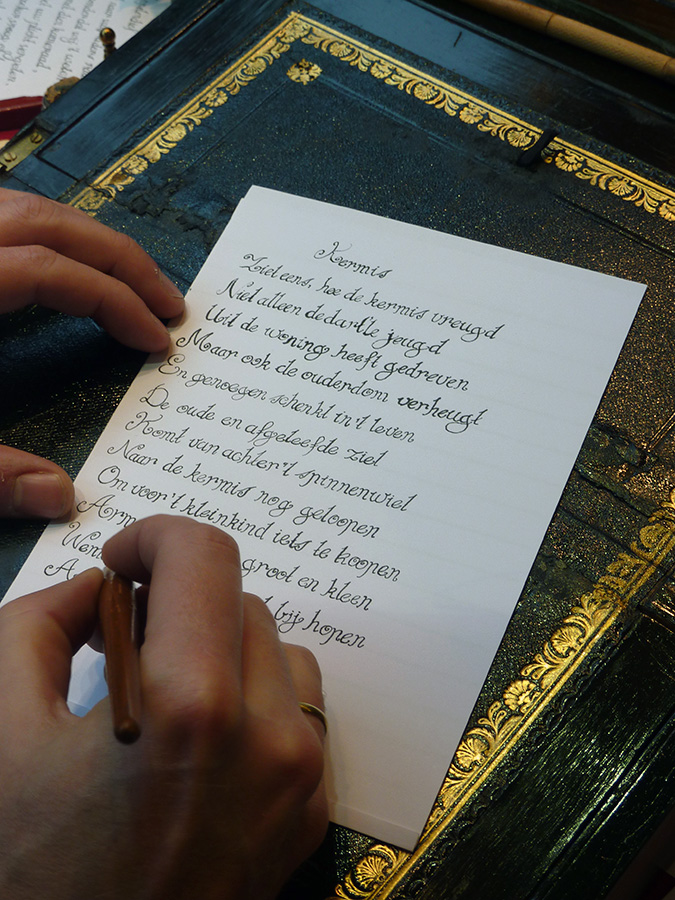 Kermis
Ziet eens, hoe de kermis vreugd
Niet alleen de dart'le jeugd
Uit de woning heeft gedreven
Maar ook de ouderdom verheugt
En genoegen schenkt in't leven
De oude en afgeleefde ziel
Komt van achter't spinnenwiel
Naar de kermis nog geloopen
Om voor't kleinkind iets te koopen
Arm
groot en kleen
bij hopen